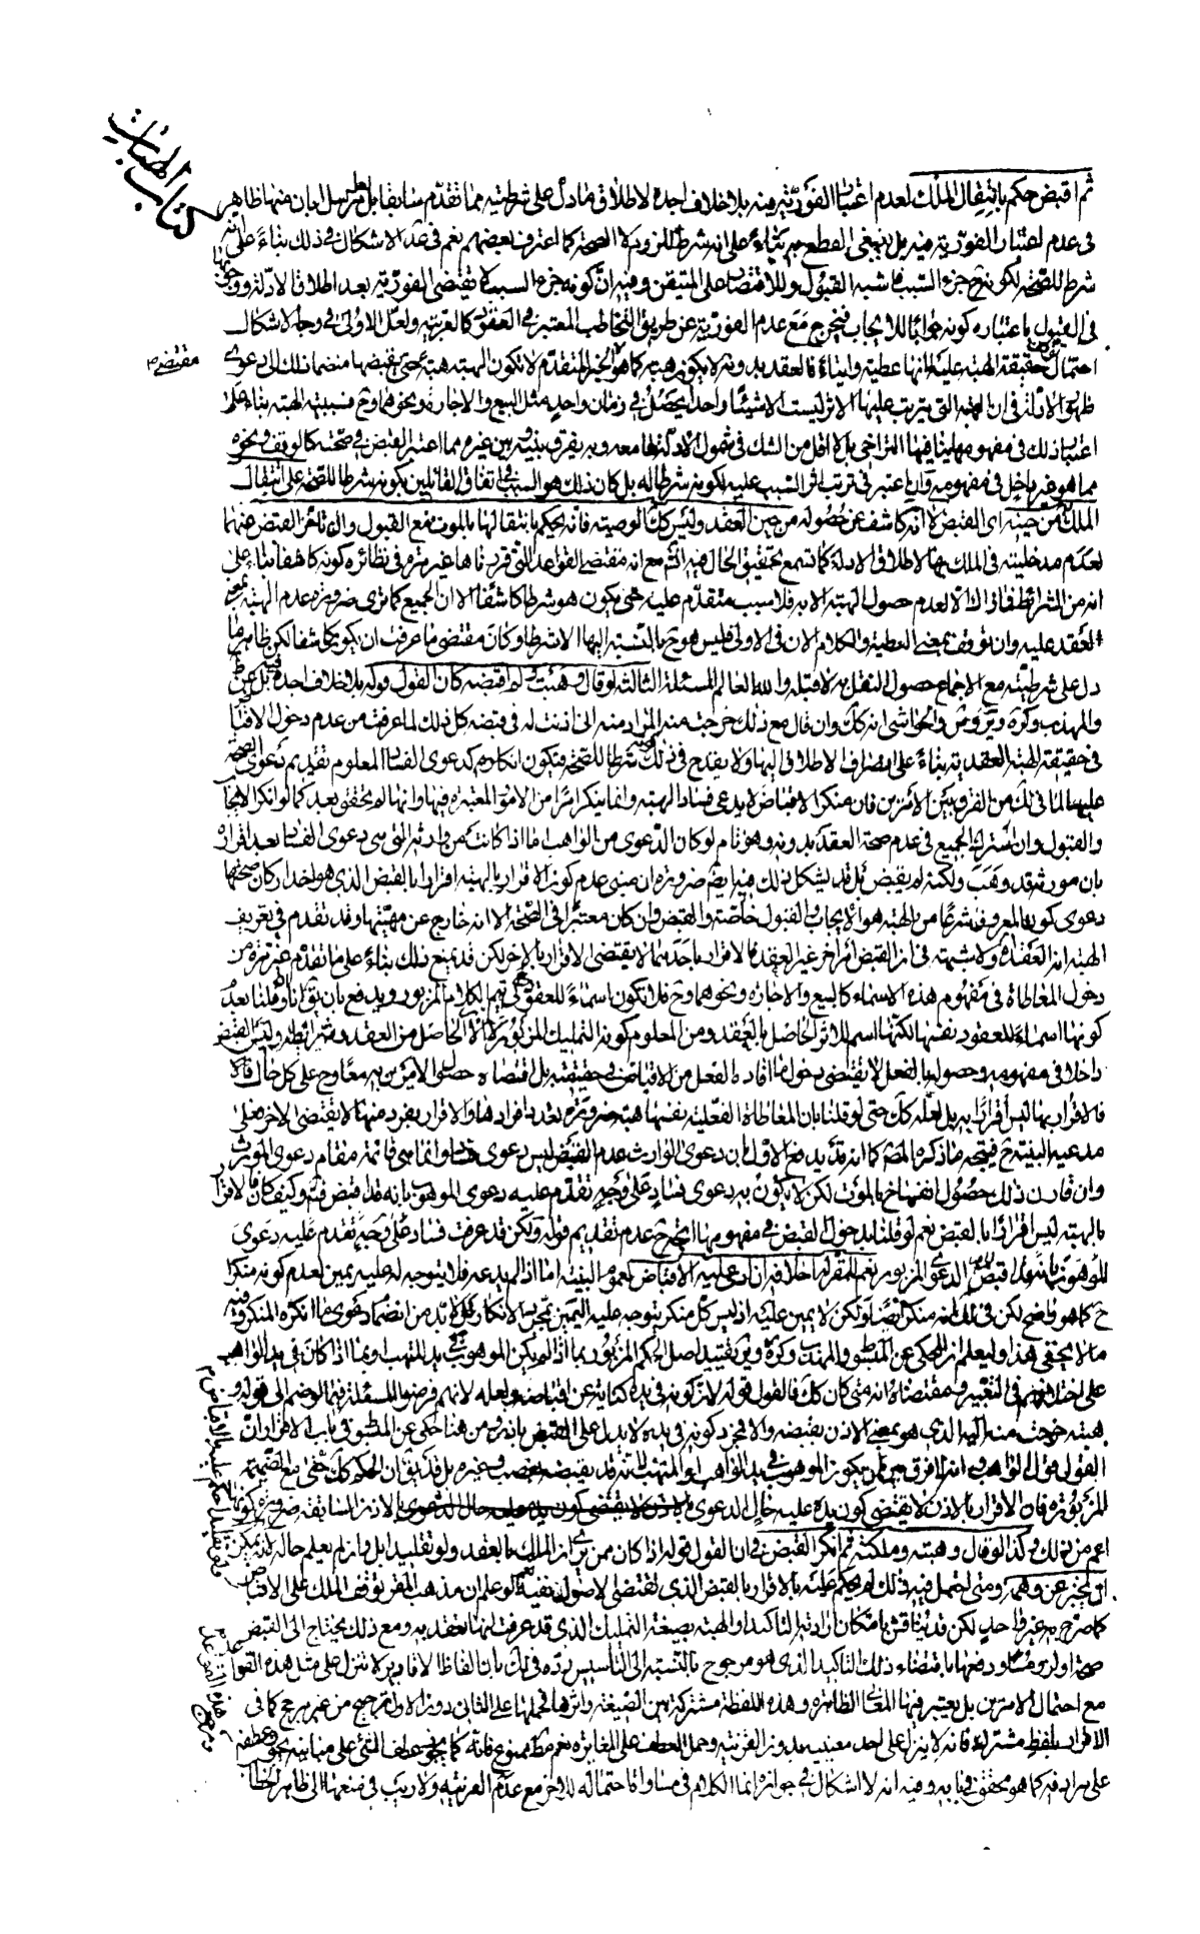 كتاب الهبات
ثم اقبض حكم بانتقال الملك لعدم اعتبار الفورية فيه بلا خلاف اجده لاطلاق ما دل على شرطيته مما تقدم سابقا بل
في عدم اعتبار الفورية فيه بل ينبغي القطع به بناء على انه شرط للزوم لا الصحة كما اعترف بعضهم نعم في عد الاشكال في ذلك بناء على انه
شرط للصحة لكونه ح جزء السبب فاشبه القبول وللاقتصار على المتيقن وفيه ان كونه جزء السبب لا يقتضى الفورية بعد اطلاق الادلة ووجوبها
في القبول باعتبار كونه جوابا للايجاب فيخرج مع عدم الفورية عن طريق التخاطب المعتبر في العقود كالعربية ولعل الاولى في وجه الاشكال
احتمال حقيقة الهبة عليه انها عطية وايتاء فالعقد بدونه لا يكون هبة كما هو الخبر المتقدم لا تكون الهبة هبة حتى يقبضها منضما ذلك الى دعوى
مقتضى
ظهور الادلة في ان الهبة التي يترتب عليها الاثر ليست الا شيئا واحدا يحصل في زمان واحد مثل البيع والاجارة ونحوهما وح فسببية الهبة بناء على
اعتبار ذلك في مفهومها ينافيها التراخى بل لا اقل من الشك في شمول الادلة لها معه وبه يفرق بينه وبين غيره مما اعتبر القبض في صحته كالوقف ونحوه
مما هو غير داخل في مفهومه وان اعتبر في ترتب اثر السبب عليه لكونه شرطا له بل كان ذلك هو السبب في اتفاق القائلين بكونه شرطا للصحة على انتقال
الملك من حينه اى القبض لا انه كاشف عن حصوله من حين العقد وليس كك الوصية فانه يحكم بانتقالها بالموت مع القبول وان تاخر القبض عنهما
لعدم مدخليته في الملك بها لاطلاق الادلة كما تسمع تحقيق الحال فيه انش مع انه مقتضى القواعد التي قررناها غير مرة في نظائره كونه كاشفا بناء على
انه من الشرائط فما ذاك الا لعدم حصول الهبة الا به فلا سبب متقدم عليه حتى يكون هو شرطا كاشفا الا ان الجميع كما ترى ضرورة عدم الهبة بمعنى
العقد عليه وان توقف بمعنى العطية والكلام الان في الاولى فليس هو ح بالنسبة اليها الا شرطا وكان مقتضى ما عرفت ان يكون كاشفا لكن ظاهر ما
دل على شرطيته مع الاجماع حصول النقل به لا قبله والله العالم المسئلة الثالثة لو قال وهبت ولم اقبضه كان القول قوله بلا خلاف اجده فيه بل عن
والمهذب وكره وير وش والحواشي انه كك وان قال مع ذلك خرجت منه اليه او منه الى اذنت له في قبضه كل ذلك لما عرفت من عدم دخول الاقباض
في حقيقة الهبة العقدية بناء على انصراف الاطلاق اليها ولا يقدح في ذلك شرطا للصحة فيكون انكاره كدعوى الفساد المعلوم تقديم دعوى الصحة
عليها لما في ذلك من الفرق بين الامرين فان منكر الاقباض لا يدعى فساد الهبة وانما ينكر امرا من الامور المعتبرة فيها وانها لم تحقق بعد كما لو انكر الايجاب
والقبول وان اشترك الجميع في عدم صحة العقد بدونه وهو تام لو كان الدعوى من الواهب اما اذا كانت من وارثه التي هي دعوى الفساد بعد اقراره
بان مورثه قد وهب ولكنه لم يقبض بل قد يشكل ذلك فيه ايضا ضرورة ان مبنى عدم كون الاقرار بالهبة اقرارا بالقبض الذي هو احد اركان صحتها
دعوى كون المعروف شرعا من الهبة هو الايجاب والقبول خاصة والقبض وان كان معتبرا في الصحة الا انه خارج عن مهيتها وقد تقدم في تعريف
الهبة انه العقد اه ولا شبهة في ان القبض امر اخر غير العقد فالاقرار باحدهما لا يقتضى الاقرار بالاخر لكن قد يمنع ذلك بناء على ما تقدم غير مرة من
دخول المعاطاة في مفهوم هذه الاسماء كالبيع والاجارة ونحوهما وح فلا تكون اسماء للعقود كي يتم الكلام المزبور ويدفع بان يق انا وان قلنا بعدم
كونها اسماء للعقود نفسها لكنها اسم للاثر الحاصل بالعقد ومن المعلوم كونه التمليك المزبور الحاصل من العقد وشرائطه وليس القبض
داخلا في مفهومه وحصوله بالفعل لا يقتضى دخول ما افاده الفعل من الاقباض في حقيقته بل اقتضاه حصول الامرين به معا وح على كل حال
فالاقرار بها ليس اقرارا به بل لعله كك حتى لو قلنا بان المعاطاة الفعلية نفسها هبة ضرورة تعدد افرادها والاقرار بفرد منها لا يقتضى الاخر فعلى
مدعيه البينة ح فيتجه ما ذكره المصنف كما انه قد يدفع الاول بان دعوى الوارث عدم القبض ليس دعوى فساد وانما هي قائمة مقام دعوى المورث
وان قارن ذلك حصول انفساخ بالموت لكن لا يكون به دعوى فساد على وجه تقدم عليه دعوى الموهوب بانه قد اقبض فت وكيف كان فالاقرار
بالهبة ليس اقرارا بالقبض نعم لو قلنا بدخول القبض في مفهومها اتجه ح عدم تقديم قوله ولكن قد عرفت فساد على وجه تقدم عليه دعوى
للموهوب بانه قد اقبض الدعوى المزبور نعم للمقر له احلافه ان ادعى عليه الاقباض لعموم البينة اما اذا لم يدعه فلا يتوجه له عليه يمين لعدم كونه منكرا
ح كما هو واضح لكن في لك انه منكر ايضا ولكن لا يمين عليه اذ ليس كل منكر يتوجه عليه اليمين بمجرد الانكار بل لا بد من انضمام دعوى ما انكره المنكر وفيه
ما لا يخفى هذا وليعلم ان المحكى عن المبسوط والمهذب وكره وير تقييد اصل الحكم المزبور بما اذا لم يكن الموهوب في يد المتهب او بما اذا كان في يد الواهب
على اختلافهم في التعبير ومقتضاه انه متى كان كك فالقول قوله لان كونه في يده كناية عن اقباضه ولعله لانهم فرضوا المسئلة فيما لو ضم الى قوله
هبته خرجت منه اليه الذي هو بمعنى الاذن بقبضه والا فمجرد كونه في يده لا يدل على القبض باذنه ومن هنا حكى عن المبسوط في باب الاقرار ان
القول قول الواهب وانه لا فرق بين ان يكون الموهوب في يد الواهب او المتهب لانه قد يقبضه بغصب وغيره بل قد يق ان الحكم كك حتى مع الضميمة
المزبورة فان الاقرار بالاذن لا يقتضى كون يده عليه حال الدعوى بالاذن السابقة ضرورة كونها
اعم من ذلك وكذا لو قال وهبته وملكته ثم انكر القبض في ان القول قوله اذا كان ممن يرى ان الملك بالعقد ولو تقليدا بل وان لم يعلم حاله لانه يمكن
ان يخبر عن وهمه ومتى احتمل فيه ذلك لم يحكم عليه بالاقرار بالقبض الذي تقتضى الاصول نفيه نعم لو علم ان مذهب المقر توقف الملك على الاقباض
كما صرح به غير واحد لكن قد يناقش بامكان ارادته التاكيد او الهبة بصيغة التمليك الذي قد عرفت انها تعقد به ومع ذلك يحتاج الى القبض
صحة او لزوما ودفعها باقتضاء ذلك التاكيد الذي هو مرجوح بالنسبة الى التاسيس يرده في لك بان الفاظ الاقارير لا تنزل على مثل هذه القواعد
مع احتمال الامرين بل يعتبر فيها المعانى الظاهرة وهذه اللفظة مشتركة بين الصيغة واثرها فحملها على الثانى دون الاول ترجيح من غير مرجح كما في
الاقرار بلفظ مشترك فانه لا ينزل على احد معنييه بدون القرينة وحمل العطف على المغايرة نعم مط ممنوع فانه كما يجوز عطف الشئ على مباينه يجوز عطفه
على مرادفه كما هو محقق في بابه وفيه انه لا اشكال في جوازه انما الكلام في مساواة احتماله للاخر مع عدم القرينة ولا ريب في منعها الى ظاهر الخطاب